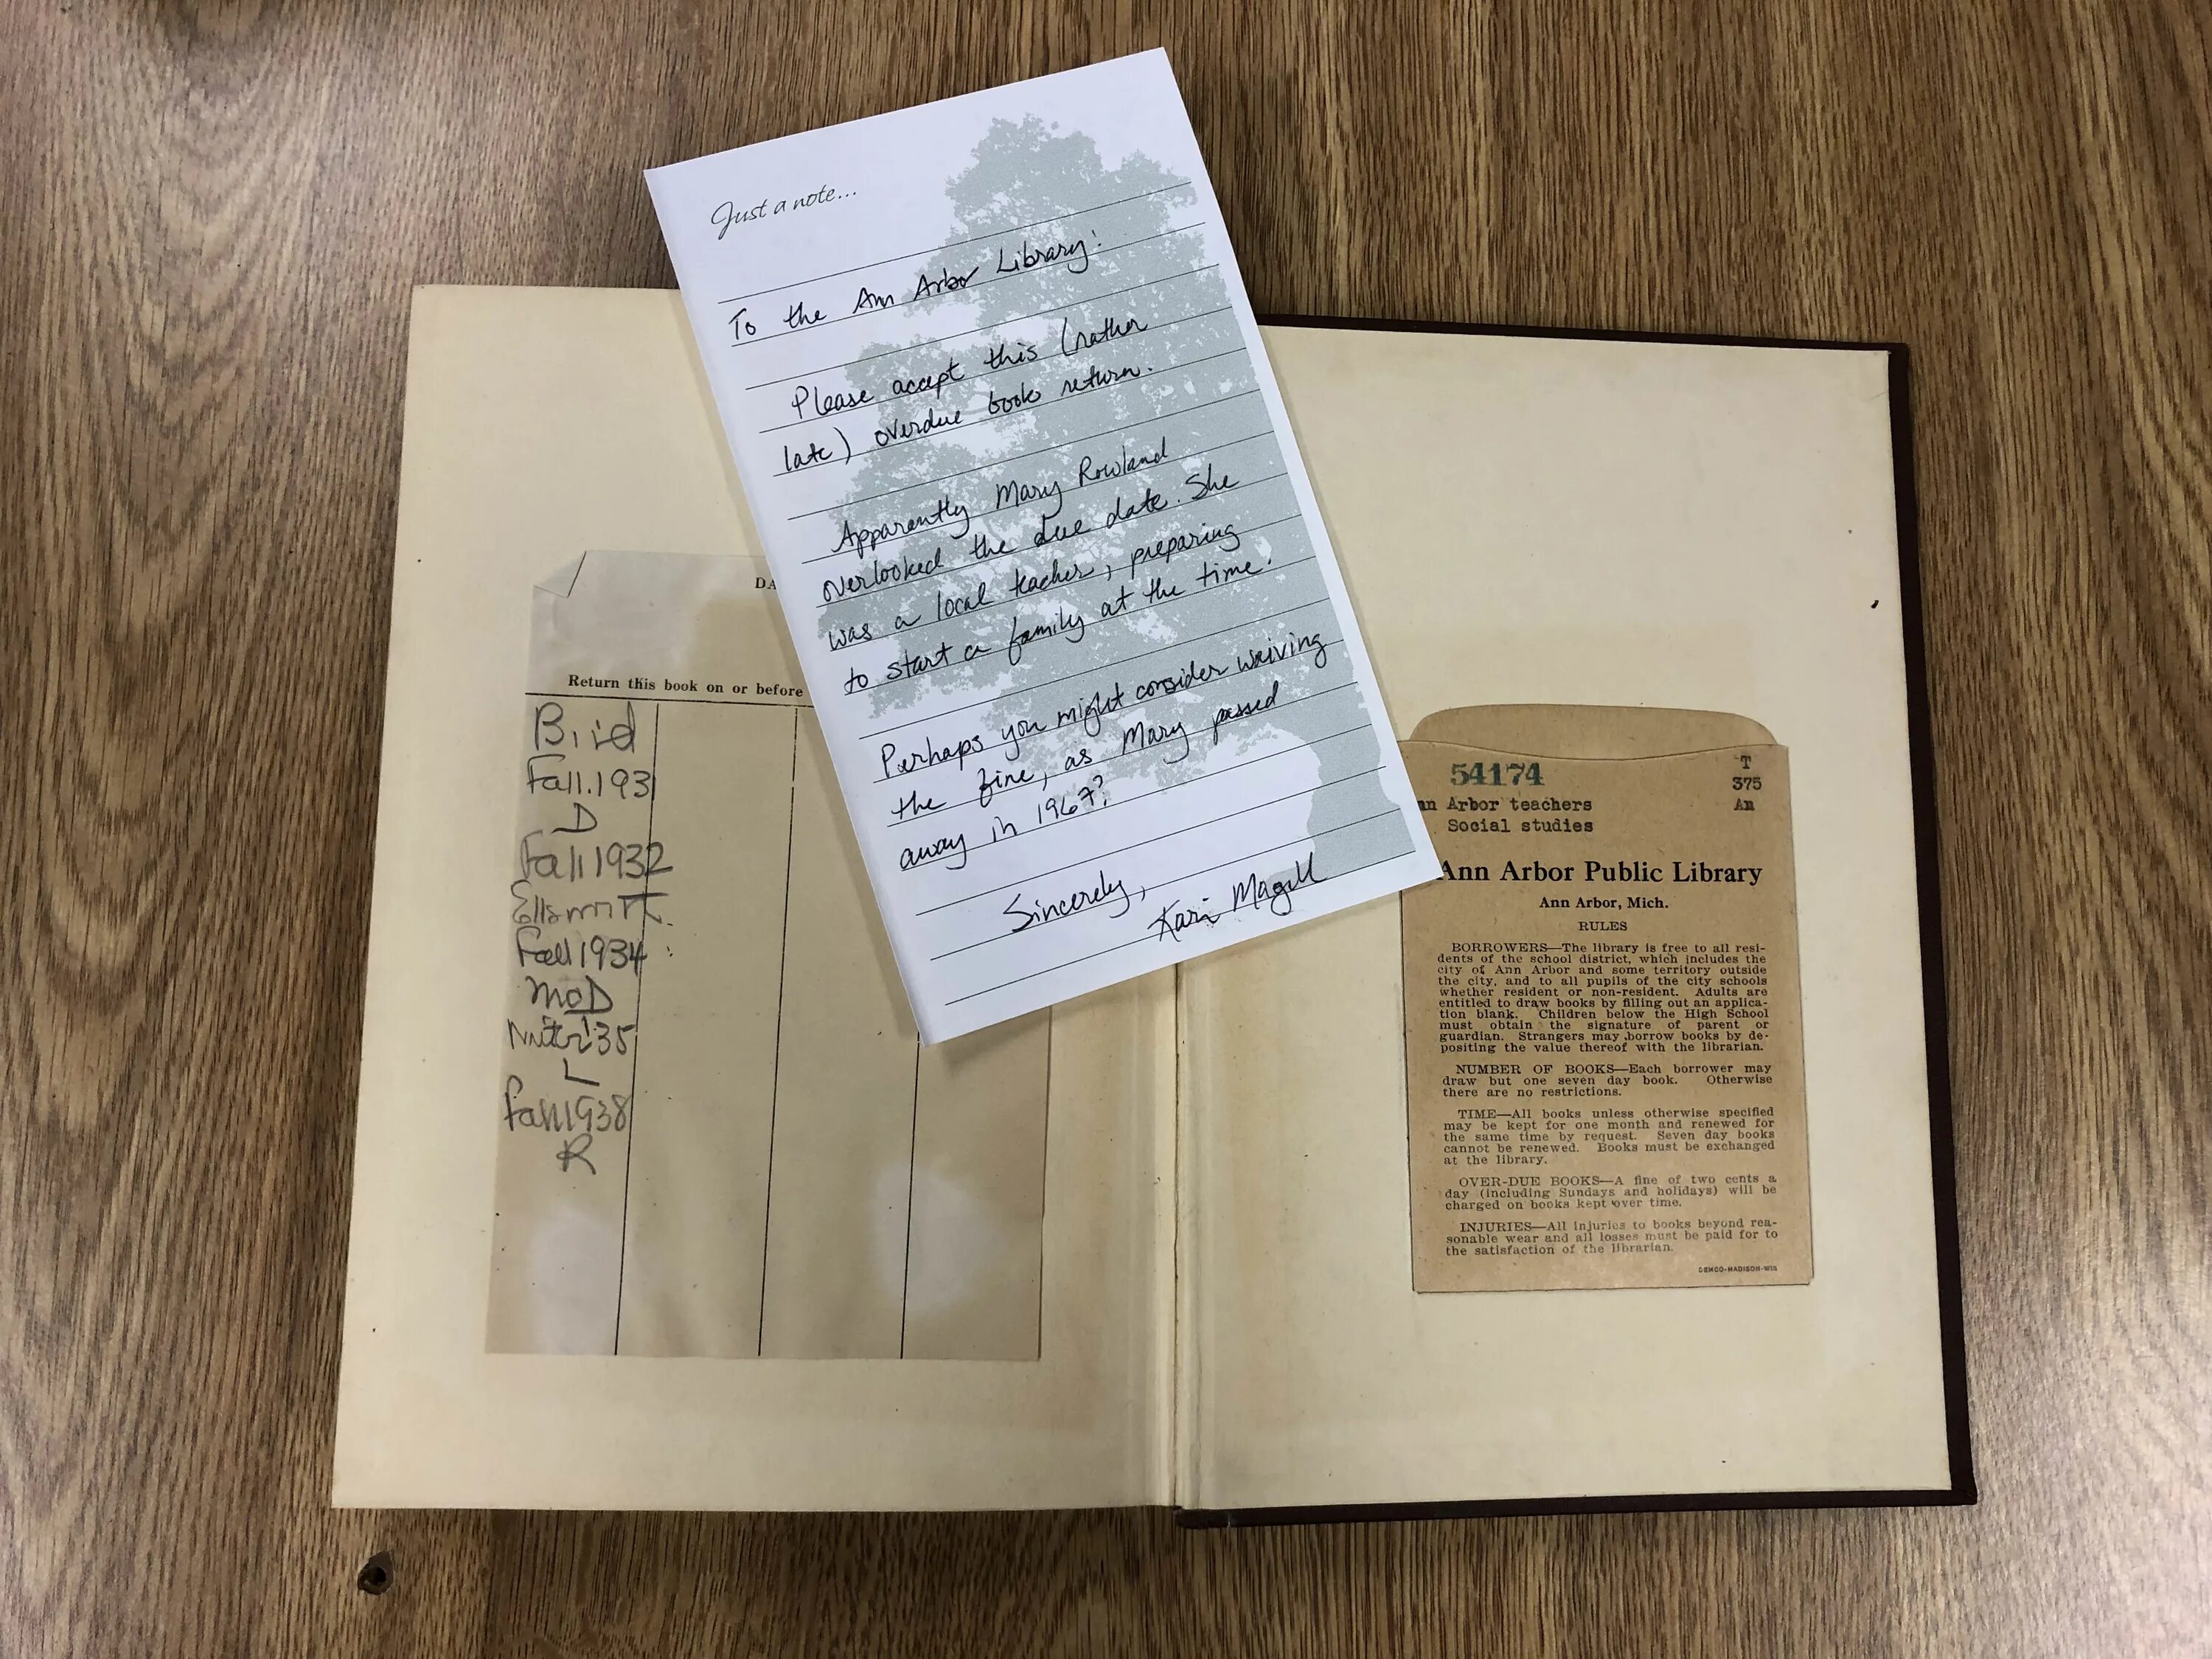 Just a note...
To the Ann Arbor Library:
Please accept this (rather
late) overdue book return.
Apparently Mary Rowland
overlooked the due date. She
was a local teacher, preparing
to start a family at the time.
Perhaps you might consider waiving
the fine, as Mary passed
away in 1967?
Sincerely,
Kari Magill
DA
Return this book on or before
Bird
Fall.193
D
Fall 1932
Fall 1934
McD
35
L
Fall 1938
R
54174
T
375
An
nn Arbor teachers
Social studies
Ann Arbor Public Library
Ann Arbor, Mich.
RULES
BORROWERS—The library is free to all resi-
dents of the school district, which includes the
city of Ann Arbor and some territory outside
the city, and to all pupils of the city schools
whether resident or non-resident. Adults are
entitled to draw books by filling out an applica-
tion blank. Children below the High School
must obtain the signature of parent or
guardian. Strangers may borrow books by de-
positing the value thereof with the librarian.
NUMBER OF BOOKS—Each borrower may
draw but one seven day book. Otherwise
there are no restrictions.
TIME—All books unless otherwise specified
may be kept for one month and renewed for
the same time by request. Seven day books
cannot be renewed. Books must be exchanged
at the library.
OVER-DUE BOOKS—A fine of two cents a
day (including Sundays and holidays) will be
charged on books kept over time.
INJURIES—All injuries to books beyond rea-
sonable wear and all losses must be paid for to
the satisfaction of the librarian.
DEMCO-MADISON-WIS